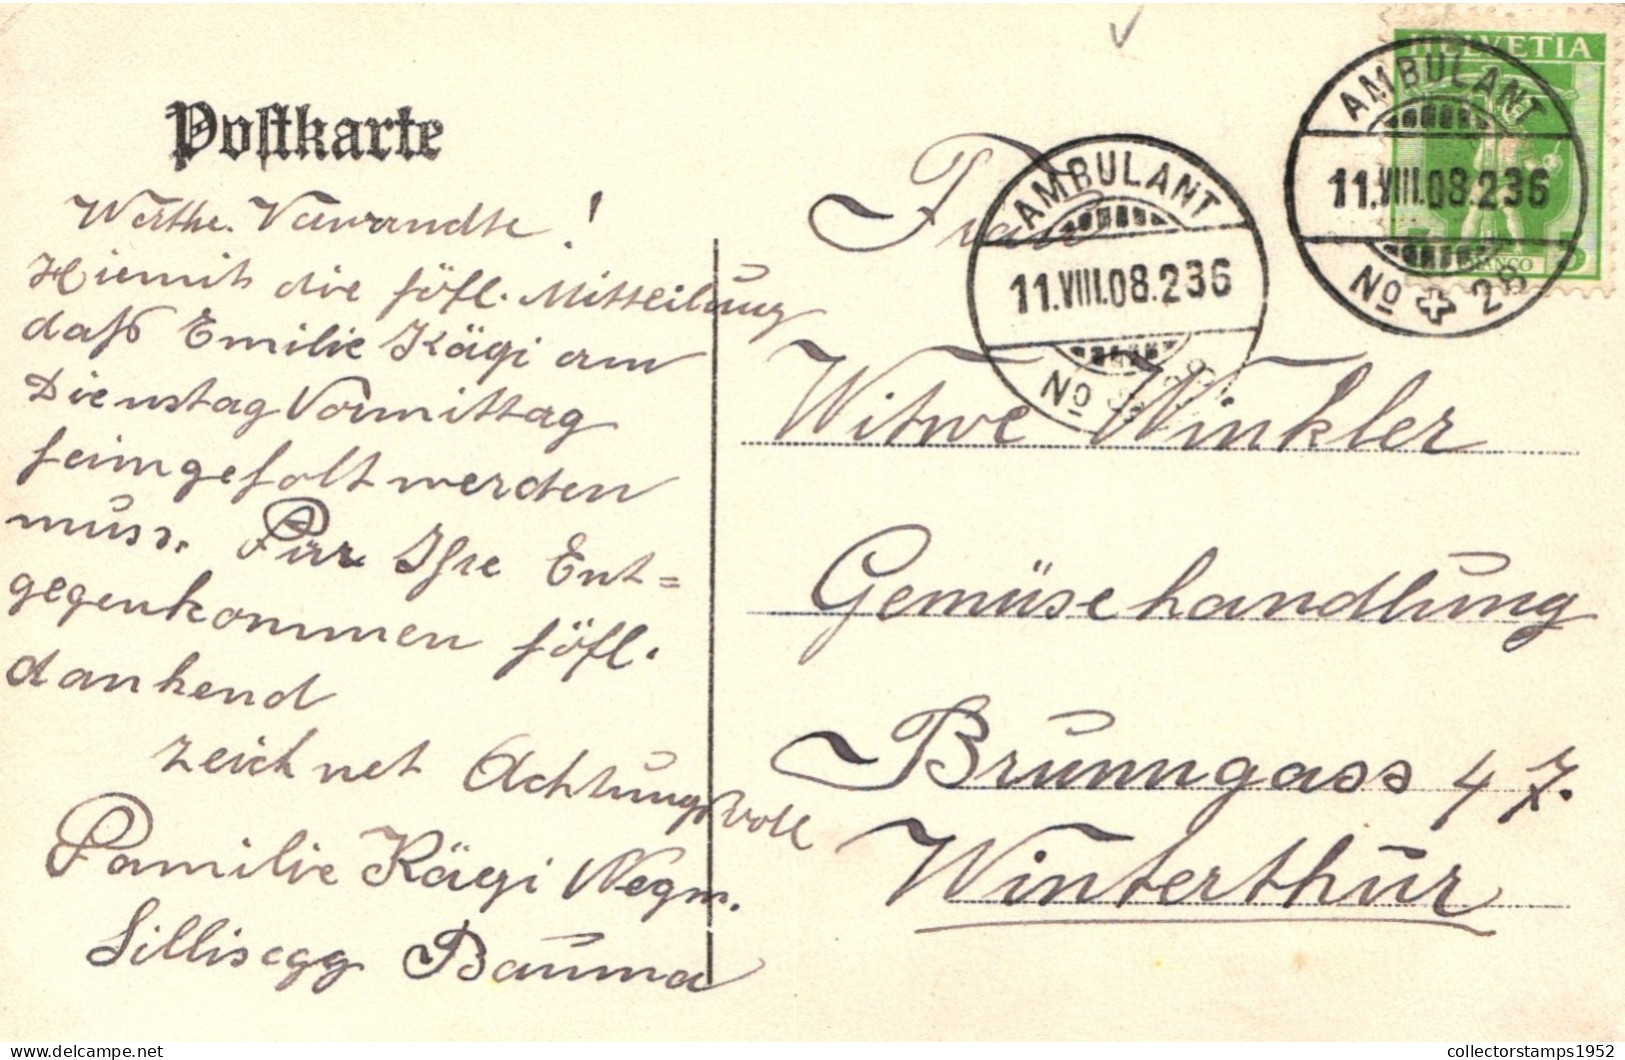 Postkarte
Werthe Verwandte!
Hiemit die höfl. Mitteilung
daß Emilie Kägi am
Dienstag Vormittag
heimgeholt werden
muss. Für Ihre Ent=
gegenkommen höfl.
dankend
zeichnet Achtungsvoll
Familie Kägi Wegm.
Sillisegg Bauma
HELVETIA
FRANCO
5
AMBULANT
11.VIII.08.236
No 26
AMBULANT
11.VIII.08.236
No
Frau
Witwe Winkler
Gemüsehandlung
Brunngass 47.
Winterthur
https://www.delcampe.net
collectorstamps1952